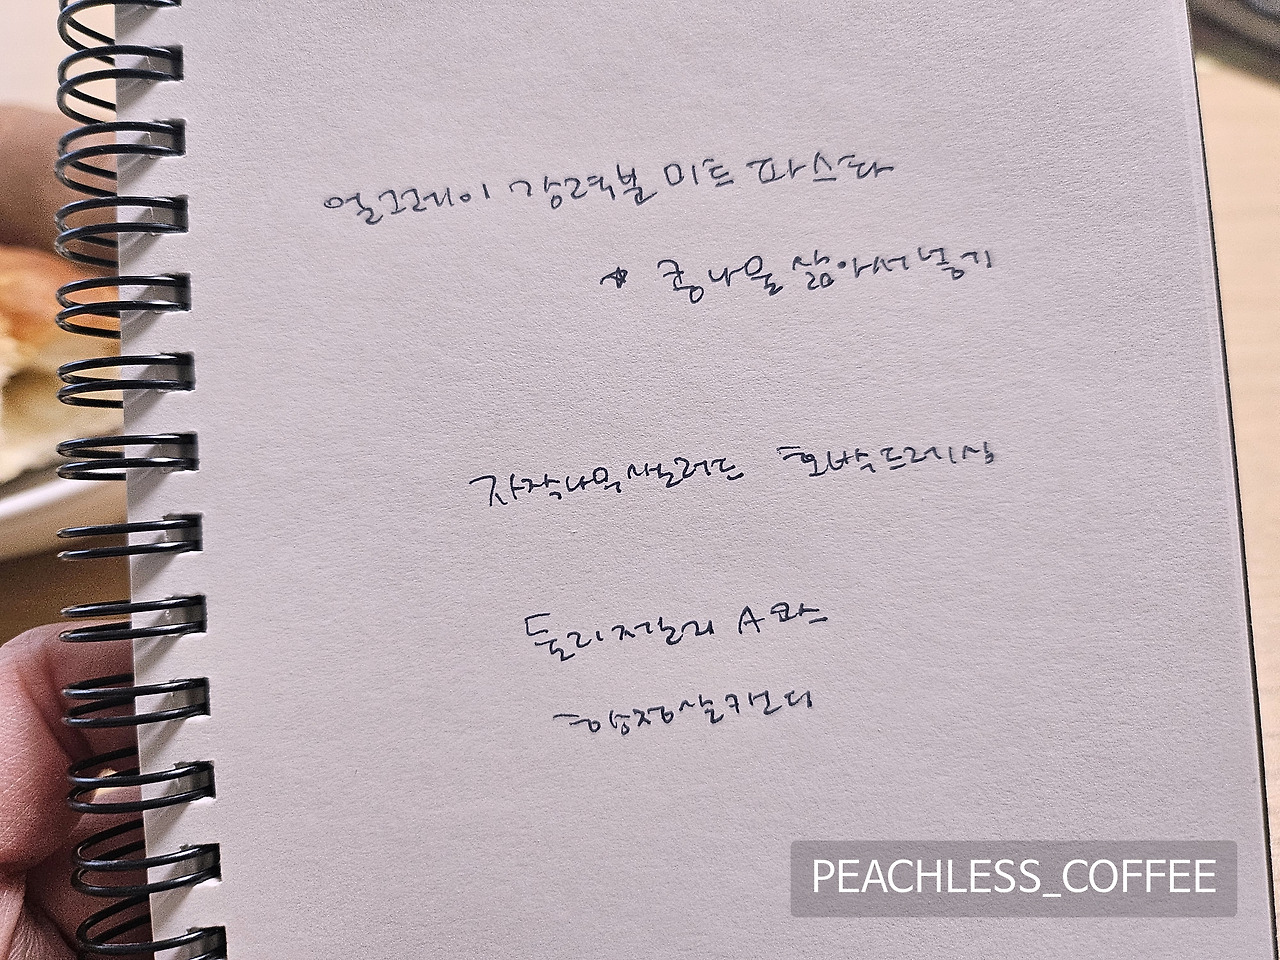 얼그레이 강력분 미트 파스타
* 콩나물 삶아서 넣기
자작나무샐러드 호박드레싱
돌리져갤리 A코스
항정살캔디
PEACHLESS_COFFEE